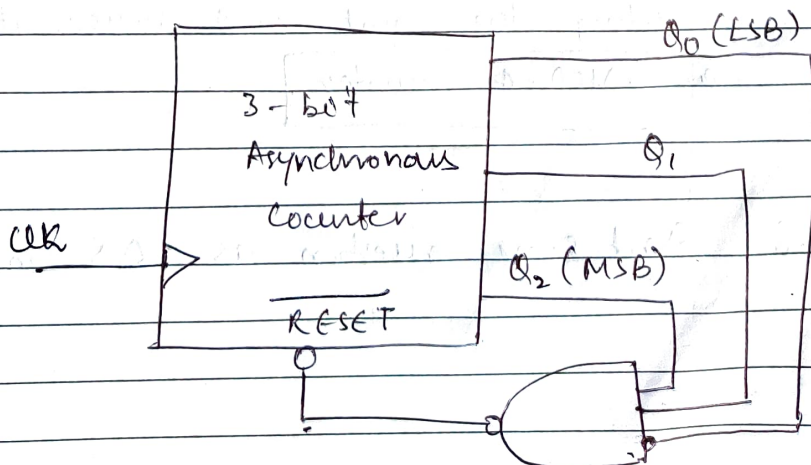 Q₀ (LSB)
3-bit
Asynchronous
Q₁
Counter
CLK
Q₂ (MSB)
RESET